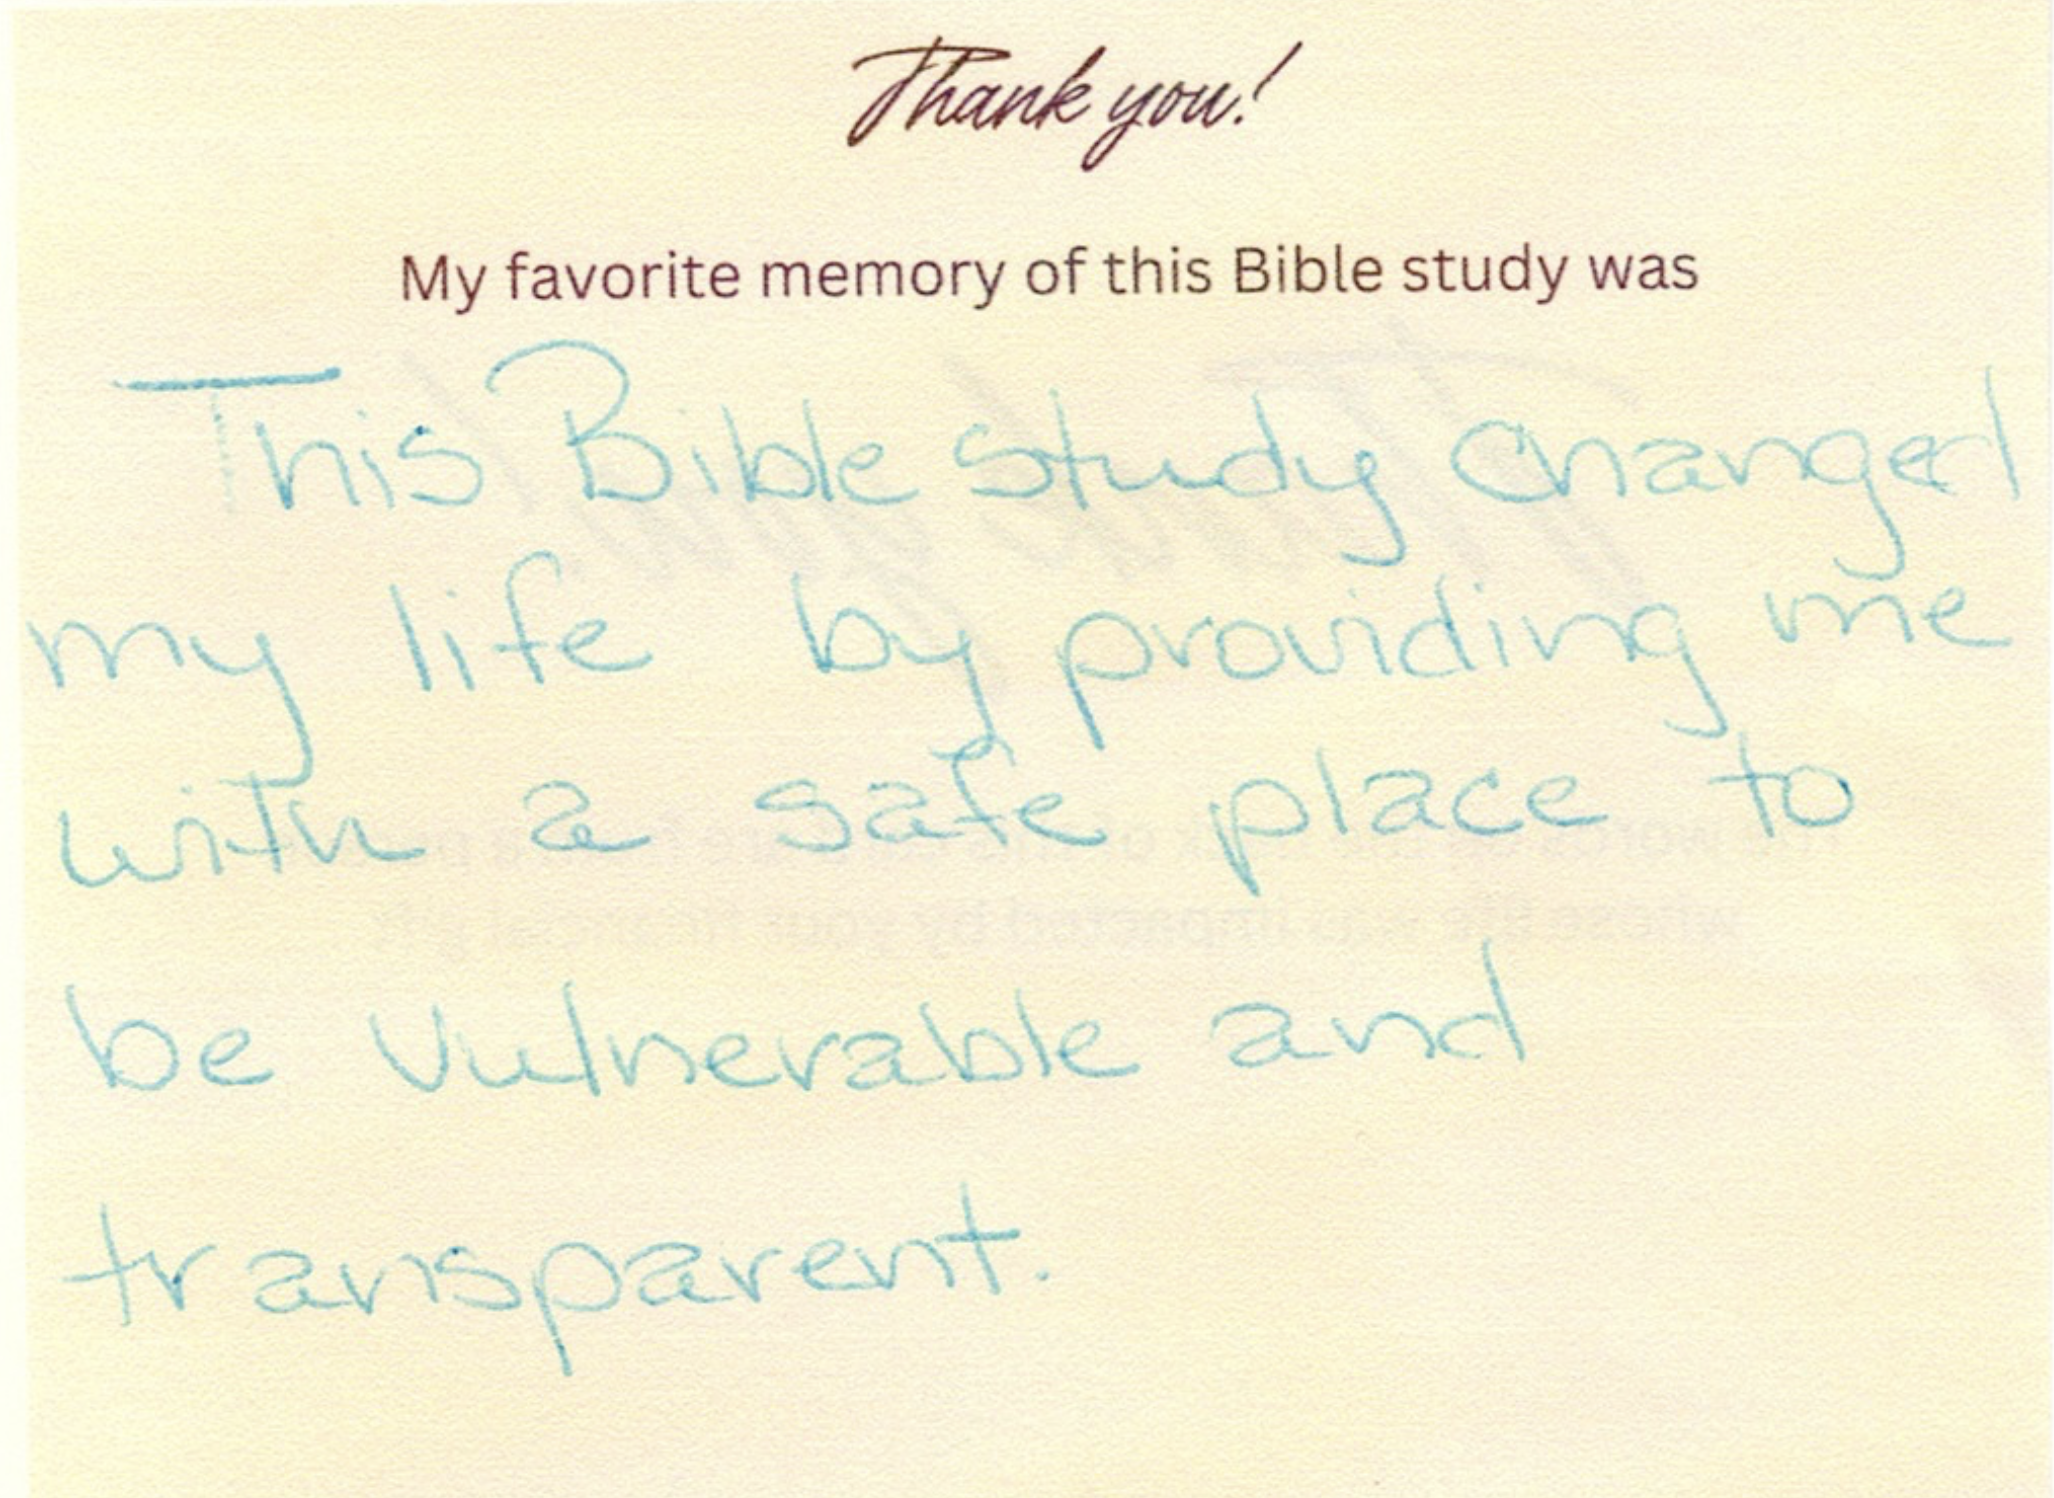 Thank you!
My favorite memory of this Bible study was
This Bible study changed
my life by providing me
with a safe place to
be vulnerable and
transparent.